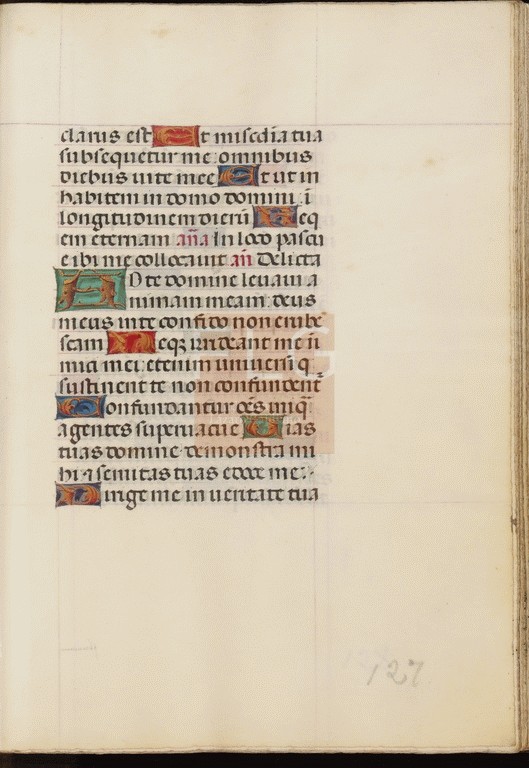 clarus est Et misc̄dia tua
subsequetur me: omnibus
diebus uite mee Et ut in
habitem in domo domini: ī
longitudinem dierū Req
iem eternam aña In loco pascu
e ibi me collocauit añ Delicta
AD te domine leuaui a
nimam meam: deus
meus in te confido non erube
scam Neqʒ irrideant me in
imici mei: etenim uniuersi q̄
sustinent te non confundent᷑
Confundantur oēs iniq̄
agentes superuacue Uias
tuas domine demonstra mi
hi: ⁊ semitas tuas edoce me:·
Dirige me in ueritate tua
127